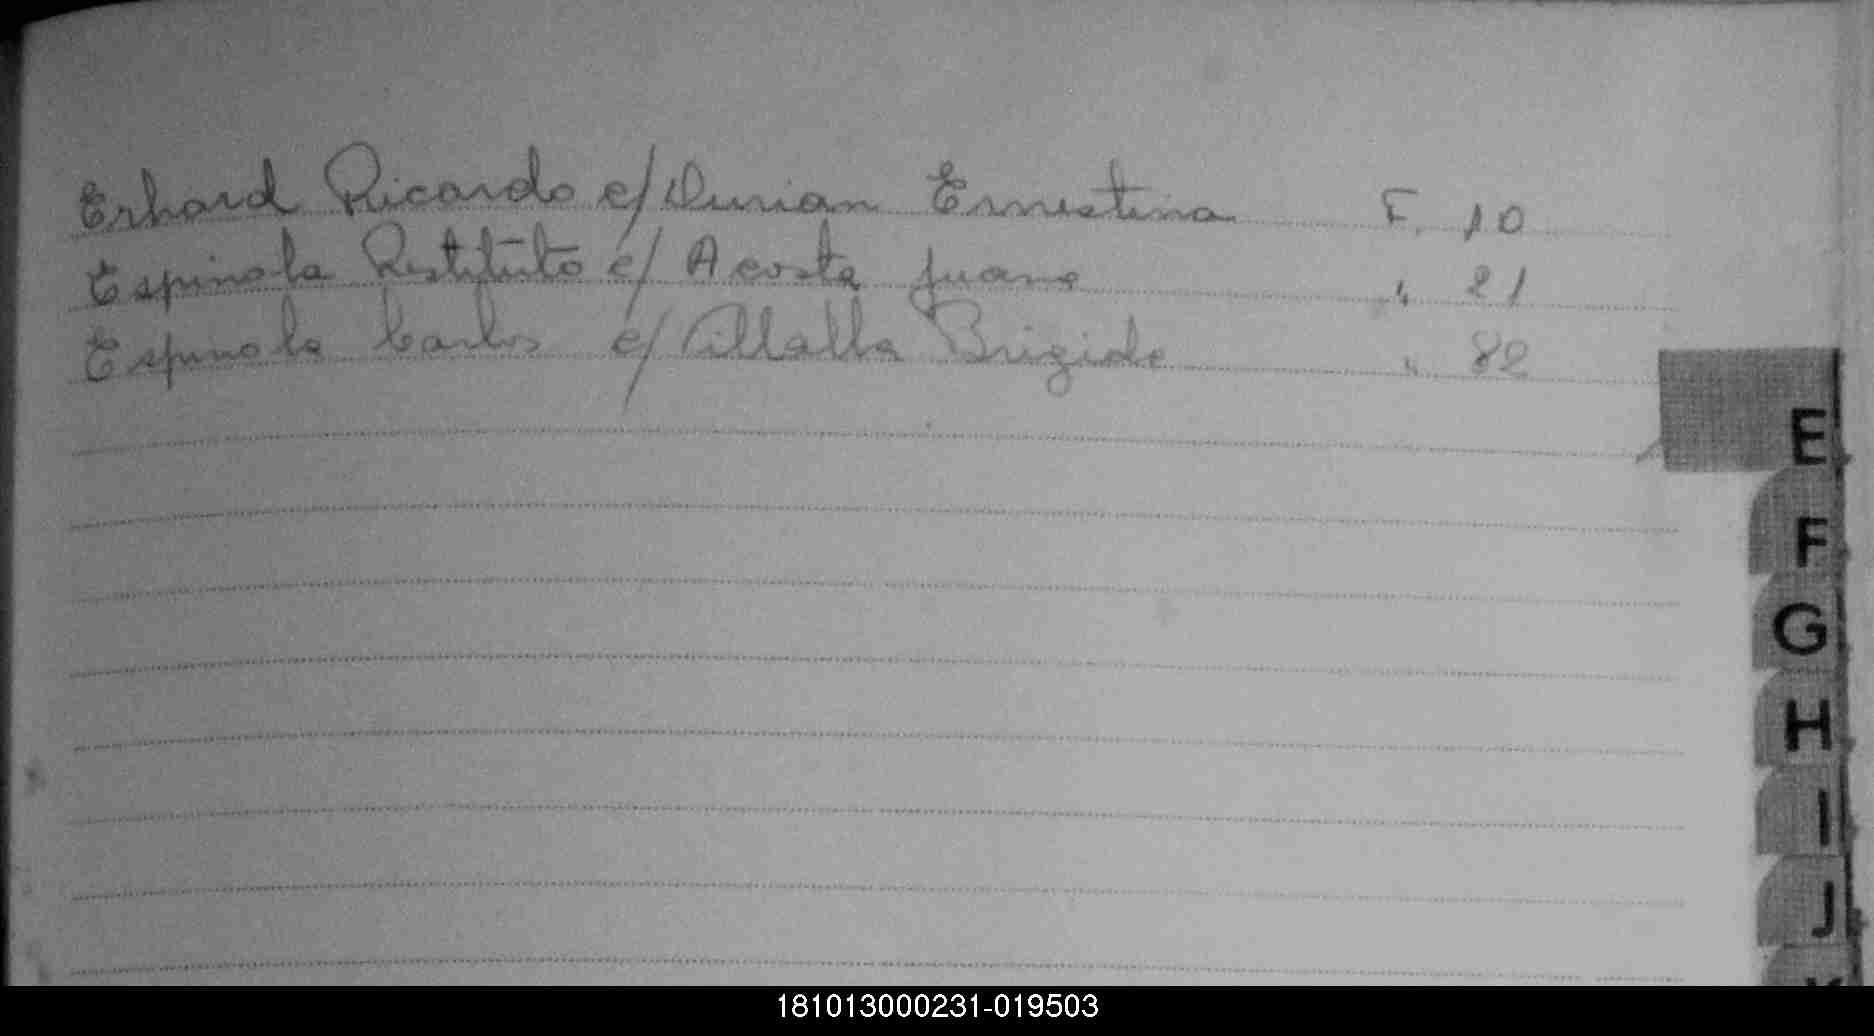 Erhard Ricardo c/ Durian Ernestina F. 10
Espinola Restituto c/ Acosta Juana " 21
Espinola Carlos c/ Brigida " 82
E
F
G
H
I
J
181013000231-019503